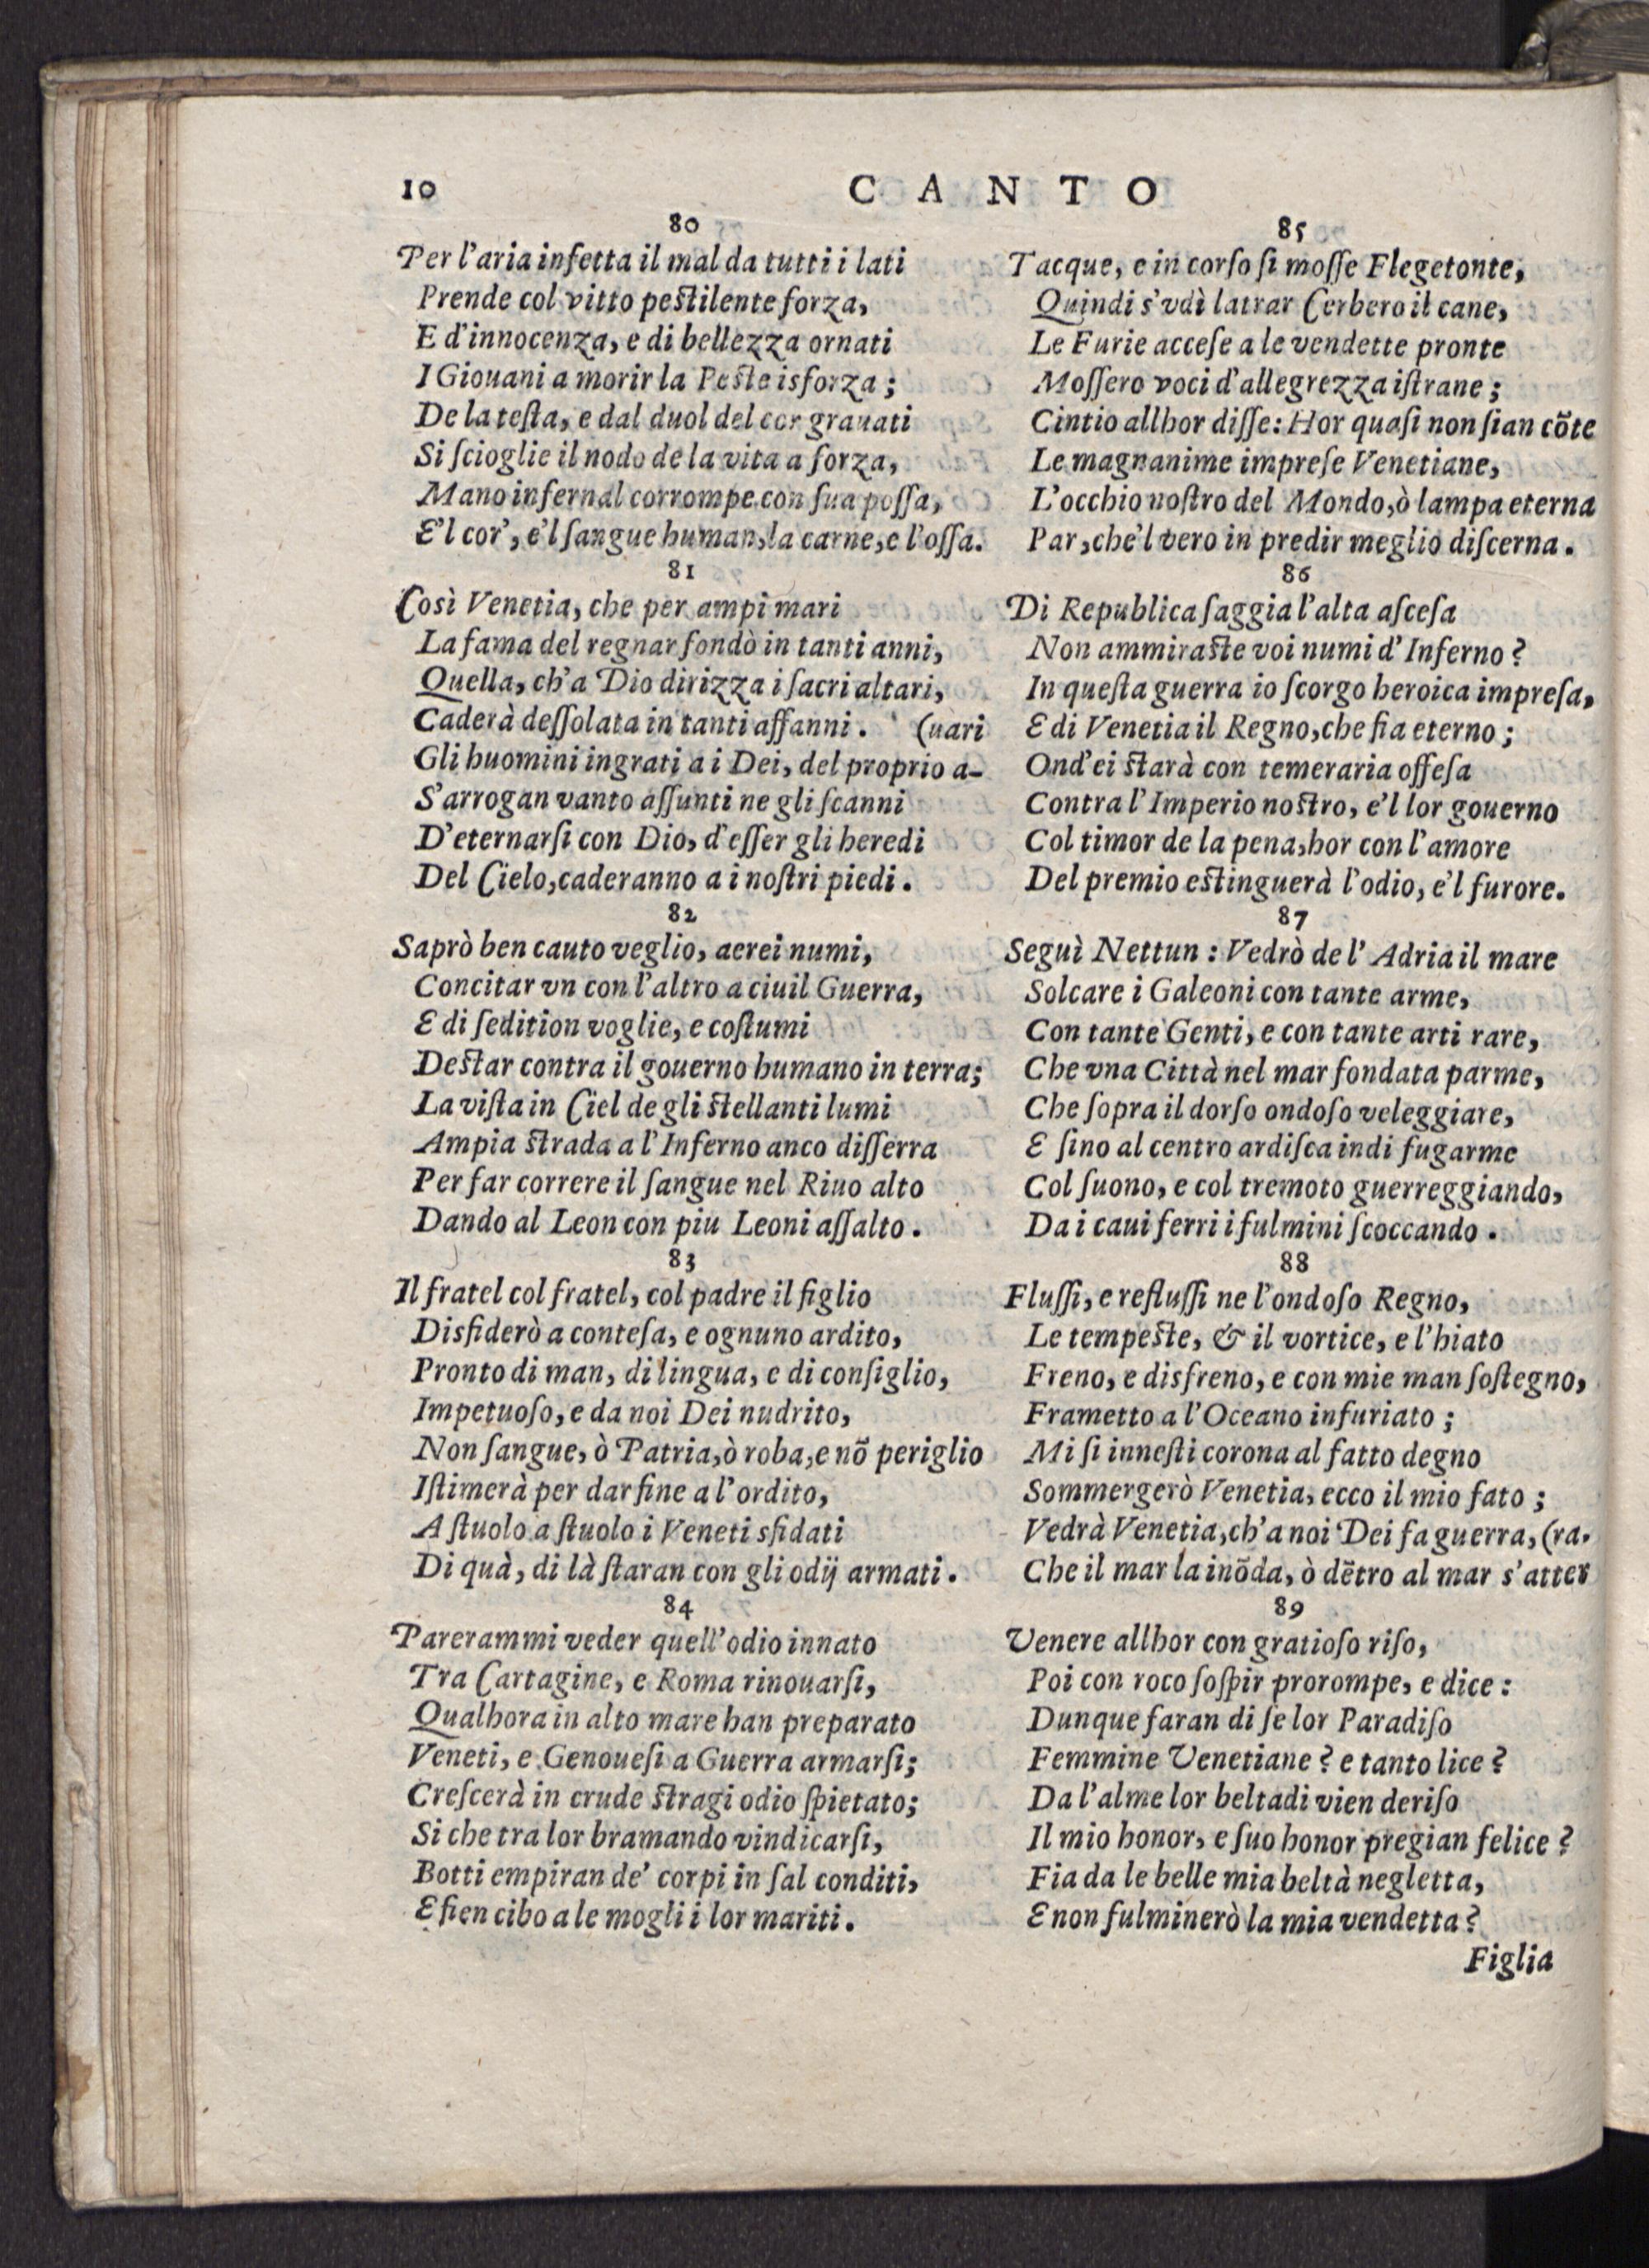 10
CANTO
80
Per l'aria infetta il mal da tutti i lati
Prende col vitto peſtilente forza,
E d'innocenza, e di bellezza ornati
I Giouani a morir la Peſte isforza;
De la teſta, e dal duol del cor grauati
Si ſcioglie il nodo de la vita a forza,
Mano infernal corrompe con ſua poſſa,
E'l cor', e'l ſangue human, la carne, e l'oſſa.
81
Così Venetia, che per ampi mari
La fama del regnar fondò in tanti anni,
Quella, ch'a Dio dirizza i ſacri altari,
Caderà deſſolata in tanti affanni. (uari
Gli huomini ingrati a i Dei, del proprio a-
S'arrogan vanto aſſunti ne gli ſcanni
D'eternarſi con Dio, d'eſſer gli heredi
Del Cielo, caderanno a i noſtri piedi.
82
Saprò ben cauto veglio, aerei numi,
Concitar vn con l'altro a ciuil Guerra,
E di ſedition voglie, e coſtumi
Deſtar contra il gouerno humano in terra;
La viſta in Ciel de gli ſtellanti lumi
Ampia ſtrada a l'Inferno anco diſſerra
Per far correre il ſangue nel Riuo alto
Dando al Leon con piu Leoni aſſalto.
83
Il fratel col fratel, col padre il figlio
Disfiderò a conteſa, e ognuno ardito,
Pronto di man, di lingua, e di conſiglio,
Impetuoſo, e da noi Dei nudrito,
Non ſangue, ò Patria, ò roba, e nõ periglio
Iſtimerà per dar fine a l'ordito,
A ſtuolo a ſtuolo i Veneti sfidati
Di quà, di là ſtaran con gli odij armati.
84
Parerammi veder quell'odio innato
Tra Cartagine, e Roma rinouarſi,
Qualhora in alto mare han preparato
Veneti, e Genoueſi a Guerra armarſi;
Creſcerà in crude ſtragi odio ſpietato;
Si che tra lor bramando vindicarſi,
Botti empiran de' corpi in ſal conditi,
E fien cibo a le mogli i lor mariti.
85
Tacque, e in corſo ſi moſſe Flegetonte,
Quindi s'vdì latrar Cerbero il cane,
Le Furie acceſe a le vendette pronte
Moſſero voci d'allegrezza iſtrane;
Cintio allhor diſſe: Hor quaſi non ſian cõte
Le magnanime impreſe Venetiane,
L'occhio noſtro del Mondo, ò lampa eterna
Par, che'l vero in predir meglio diſcerna.
86
Di Republica ſaggia l'alta aſceſa
Non ammiraſte voi numi d'Inferno?
In queſta guerra io ſcorgo heroica impreſa,
E di Venetia il Regno, che fia eterno;
Ond'ei ſtarà con temeraria offeſa
Contra l'Imperio noſtro, e'l lor gouerno
Col timor de la pena, hor con l'amore
Del premio eſtinguerà l'odio, e'l furore.
87
Seguì Nettun: Vedrò de l'Adria il mare
Solcare i Galeoni con tante arme,
Con tante Genti, e con tante arti rare,
Che vna Città nel mar fondata parme,
Che ſopra il dorſo ondoſo veleggiare,
E ſino al centro ardiſca indi fugarme
Col ſuono, e col tremoto guerreggiando,
Da i caui ferri i fulmini ſcoccando.
88
Fluſſi, e refluſſi ne l'ondoſo Regno,
Le tempeſte, & il vortice, e l'hiato
Freno, e disfreno, e con mie man ſoſtegno,
Frametto a l'Oceano infuriato;
Mi ſi inneſti corona al fatto degno
Sommergerò Venetia, ecco il mio fato;
Vedrà Venetia, ch'a noi Dei fa guerra, (ra.
Che il mar la inõda, ò dẽtro al mar s'atter
89
Venere allhor con gratioſo riſo,
Poi con roco ſoſpir prorompe, e dice:
Dunque faran di ſe lor Paradiſo
Femmine Venetiane? e tanto lice?
Da l'alme lor beltadi vien deriſo
Il mio honor, e ſuo honor pregian felice?
Fia da le belle mia beltà negletta,
E non fulminerò la mia vendetta?
Figlia